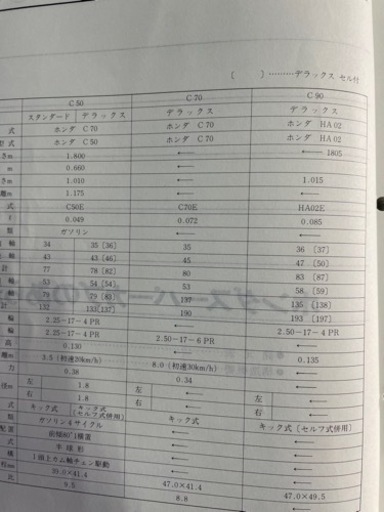 〔　　　〕………デラックス セル付
C 50　C 70　C 90
スタンダード　デラックス　デラックス　デラックス
式　ホンダ C 70　ホンダ C 70　ホンダ HA 02
型式　ホンダ C 50　ホンダ C 70　ホンダ HA 02
さm　1.800　←　←1805
m　0.660　←　←
さm　1.010　←　1.015
離m　1.175　←　←
式　C50E　C70E　HA02E
ℓ　0.049　0.072　0.085
類　ガソリン　←　←
輪　34　35〔36〕　35　36〔37〕
輪　43　43〔46〕　45　47〔50〕
計　77　78〔82〕　80　83〔87〕
輪　53　54〔54〕　53　58〔59〕
輪　79　79〔83〕　137　135〔138〕
計　132　133〔137〕　190　193〔197〕
輪　2.25－17－4 PR　←　2.50－17－4 PR
輪　2.25－17－4 PR　2.50－17－6 PR　←
高　0.130　←　←
離m　3.5（初速20km/h）　8.0（初速30km/h）　0.135
力　0.38　0.34　←
径m　左　1.8　←　左　←
右　1.8　←　右　←
式　キック式　キック式〔セルフ式併用〕　キック式　キック式〔セルフ式併用〕
類　ガソリン4サイクル　←　←
配置　前傾80°1横置　←　←
式　半球形　←　←
構　1頭上カム軸チェン駆動　←　←
行mm　39.0×41.4　47.0×41.4　47.0×49.5
比　9.5　8.8